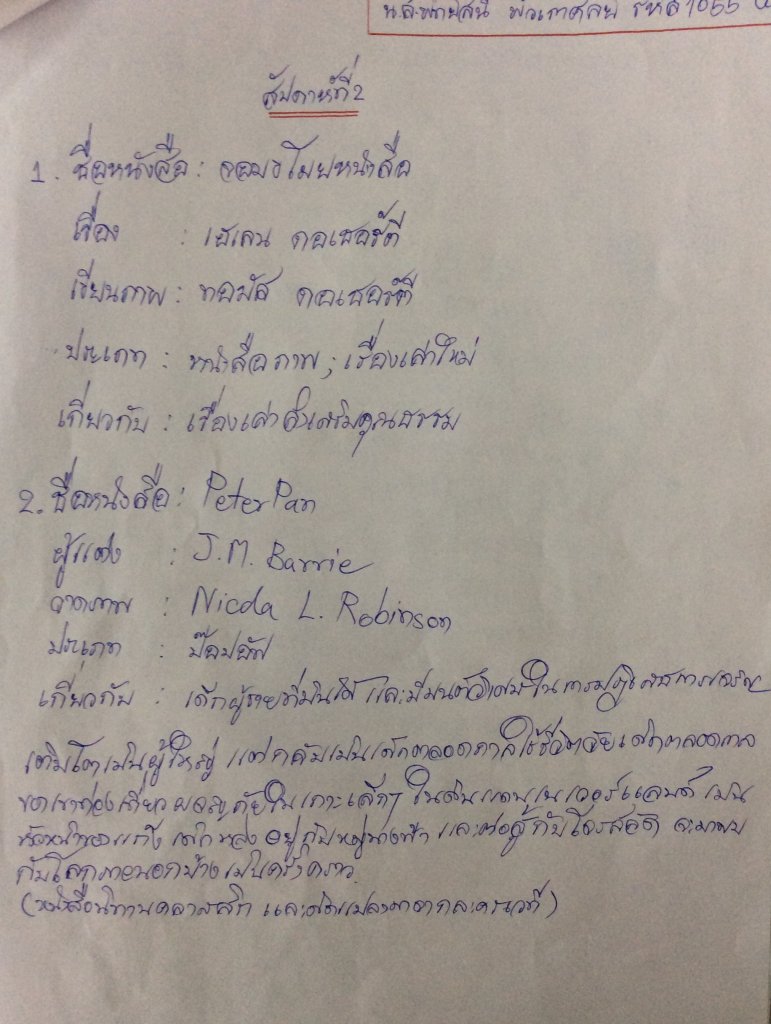 น.ส. รหัส 1055
สัปดาห์ที่ 2
1. ชื่อหนังสือ : จอมขโมยหนังสือ
เรื่อง : เฮเลน ดอเชอร์ตี
เขียนภาพ : ทอมัส ดอเชอร์ตี
ประเภท : หนังสือภาพ, เรื่องเล่าใหม่
เกี่ยวกับ : เรื่องเล่าส่งเสริมคุณธรรม
2. ชื่อหนังสือ : Peter Pan
ผู้แต่ง : J.M. Barrie
วาดภาพ : Nicola L. Robinson
ประเภท : ป๊อปอัพ
เกี่ยวกับ : เด็กผู้ชายที่บินได้ และมีมนต์วิเศษในการปฏิเสธการเจริญ
เติบโตเป็นผู้ใหญ่ แต่กลับเป็นเด็กตลอดกาล ใช้ชีวิตวัยเด็กตลอดกาล
ของเขาท่องเที่ยวผจญภัยในเกาะเล็กๆ ในดินแดนเนเวอร์แลนด์ เป็น
หัวหน้าของแก๊งเด็กหลง อยู่กับหมู่นางฟ้า และต่อสู้กับโจรสลัด จะมาพบ
กับโลกภายนอกบ้างเป็นครั้งคราว
(หนังสือนิทานคลาสสิก และดัดแปลงมาจากละครเวที)